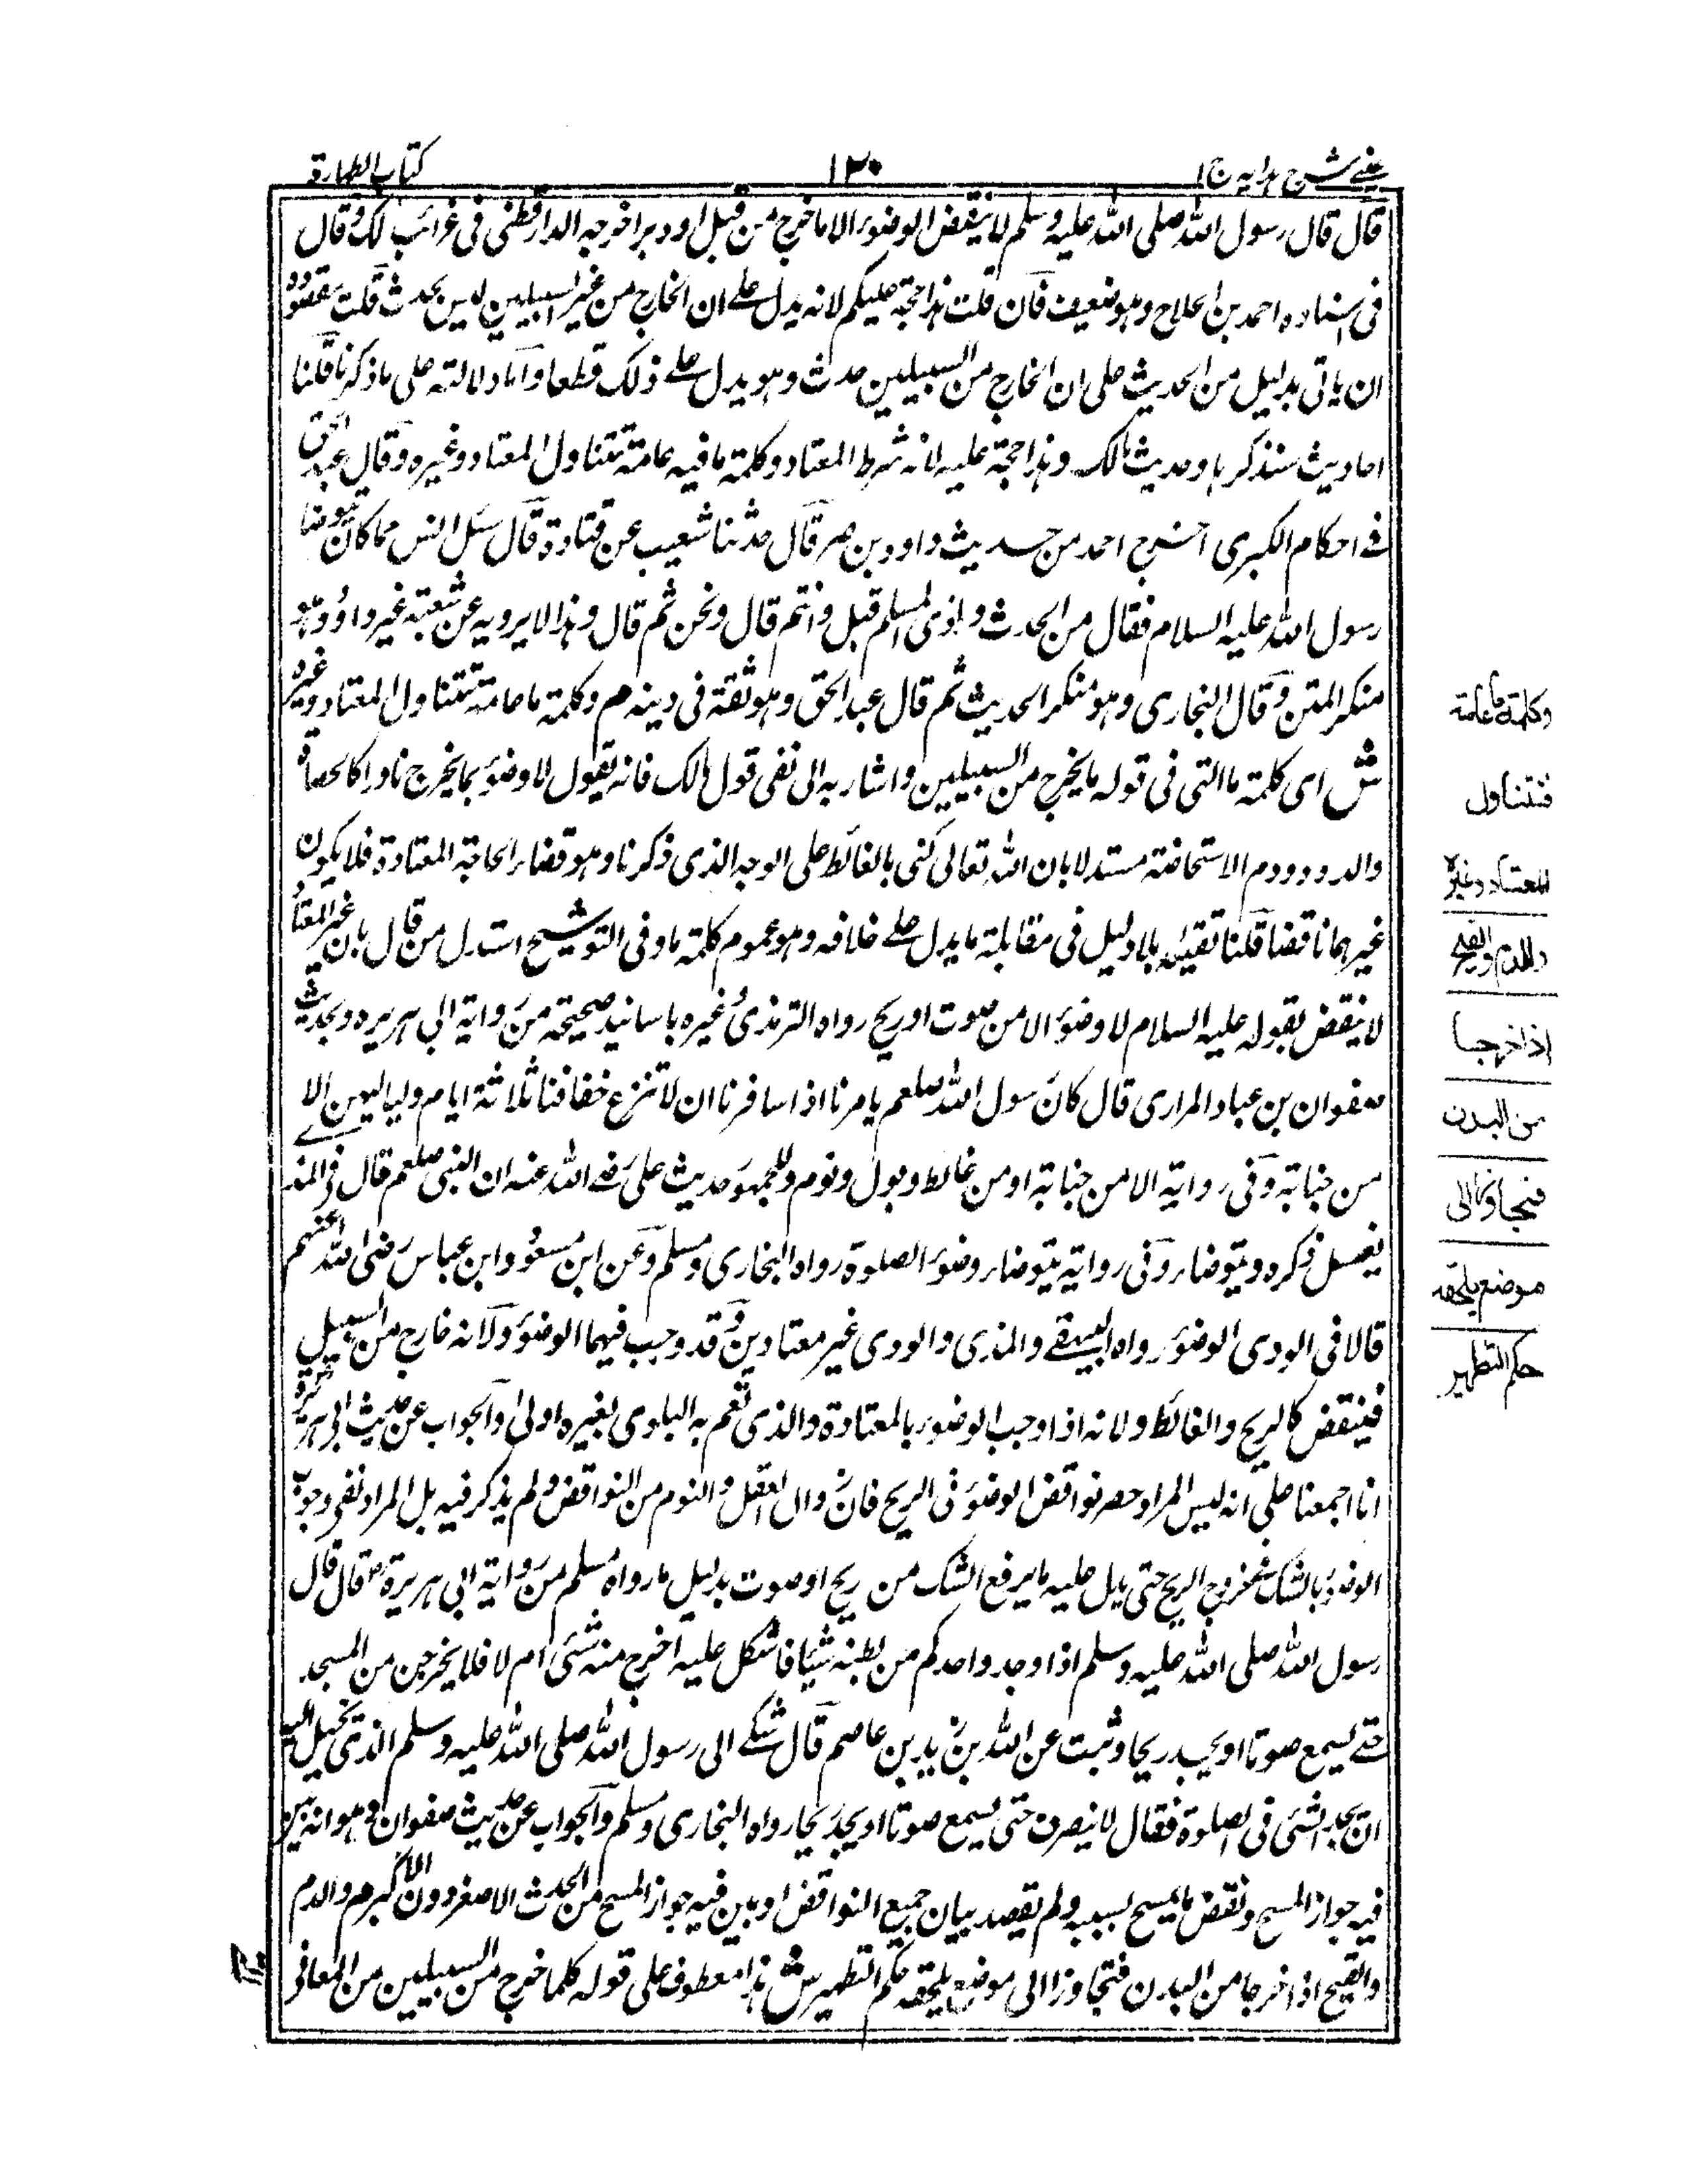 عینی شرح ہدایہ ج ا
۱۳۰
کتاب الطہارة
قال قال رسول الله صلی الله علیه وسلم لا ینقض الوضوء الا ما خرج من قبل او دبر اخرجه الدارقطنی فی غرائب مالک وقال
فی اسناده احمد بن اللجلاج وهو ضعیف فان قلت هذا حجة علیکم لانه یدل علی ان الخارج من غیر السبیلین لیس بحدث قلت مقصوده
ان یاتی بدلیل من الحدیث علی ان الخارج من السبیلین حدث وهو یدل علی ذلک قطعا واما دلالته علی ما ذکرنا قلنا
احادیث سنذکرها وحدیث مالک وهذا حجة علیه لانه شرط المعتاد وکلمة ما فیه عامة تتناول المعتاد وغیره وقال عبد الحق
فی احکام الکبری اخرج احمد من حدیث داود بن قال حدثنا شعیب عن قتادة قال سئل انس مما کان یتوضأ
رسول الله علیه السلام فقال من الحدث واذی المسلم قیل وانتم قال ونحن ثم قال وهذا لا یرویه عن شعبة غیر داؤد وهو
منکر المتن وقال البخاری وهو منکر الحدیث ثم قال عبد الحق وهو ثقة فی دینه م وکلمة ما عامة تتناول المعتاد وغیره
ش ای کلمة ما التی فی قوله ما یخرج من السبیلین واشار به الی نفی قول مالک فانه یقول لا وضوء بما یخرج نادرا کالحصاة
والدود ودم الاستحاضة مستدلا بان الله تعالی کنی بالغائط علی الوجه الذی ذکرنا وهو قضاء الحاجة المعتادة فلا یکون
غیرهما ناقضا قلنا تقیید بلا دلیل فی مقابلة ما یدل علی خلافه وهو عموم کلمة ما وفی التوشیح استدل من قال بان غیر المعتاد
لا ینقض بقوله علیه السلام لا وضوء الا من صوت او ریح رواه الترمذی وغیره باسانید صحیحة من روایة ابی هریره وبحدیث
صفوان بن عباد المرادی قال کان رسول الله صلعم یامرنا اذا سافرنا ان لا ننزع خفافنا ثلاثة ایام ولیالیهن الا
من جنابة وفی روایة الا من جنابة او من غائط وبول ونوم وللجمهور حدیث علی رضی الله عنه ان النبی صلعم قال فی المذی
یغسل ذکره ویتوضاء وفی روایة یتوضاء وضوء الصلوة رواه البخاری ومسلم وعن ابن مسعود وابن عباس رضی الله عنهم
قالا فی الودی الوضوء رواه البیهقی والمذی والودی غیر معتادین وقد وجب فیهما الوضوء ولانه خارج من السبیل
فینقض کالریح والغائط ولانه اذا وجب الوضوء بالمعتادة والذی تعم به البلوی لغیره اولی والجواب عن حدیث ابی هریرة
انا اجمعنا علی انه لیس المراد حصر نواقض الوضوء فی الریح فان زوال العقل والنوم من النواقض ولم یذکر فیه بل المراد نفی وجوب
الوضوء بالشک فی خروج الریح حتی یدل علیه ما یرفع الشک من ریح او صوت بدلیل ما رواه مسلم من روایة ابی هریرة قال قال
رسول الله صلی الله علیه وسلم اذا وجد واحدکم من بطنه شیئا فاشکل علیه اخرج منه شئ ام لا فلا یخرجن من المسجد
حتی یسمع صوتا او یجد ریحا وثبت عن الله بن زید بن عاصم قال شکی الی رسول الله صلی الله علیه وسلم الذی یخیل الیه
ان یجد الشئ فی الصلوة فقال لا ینصرف حتی یسمع صوتا او یجد ریحا رواه البخاری ومسلم والجواب عن حدیث صفوان وهو انه بین
فیه جواز المسح ونقض ما یمسح بسببه ولم یقصد بیان جمیع النواقض او بین فیه جواز المسح من الحدث الاصغر دون الاکبر م والدم
والقیح اذا خرجا من البدن فتجاوزا الی موضع یلحقه حکم التطهیر ش هذا معطوف علی قوله کلما خرج من السبیلین من المعانی
وکلمة ما عامة
فتتناول
المعتاد وغیره
والدم والقیح
اذا خرجا
من البدن
فتجاوزا الی
موضع یلحقه
حکم التطهیر